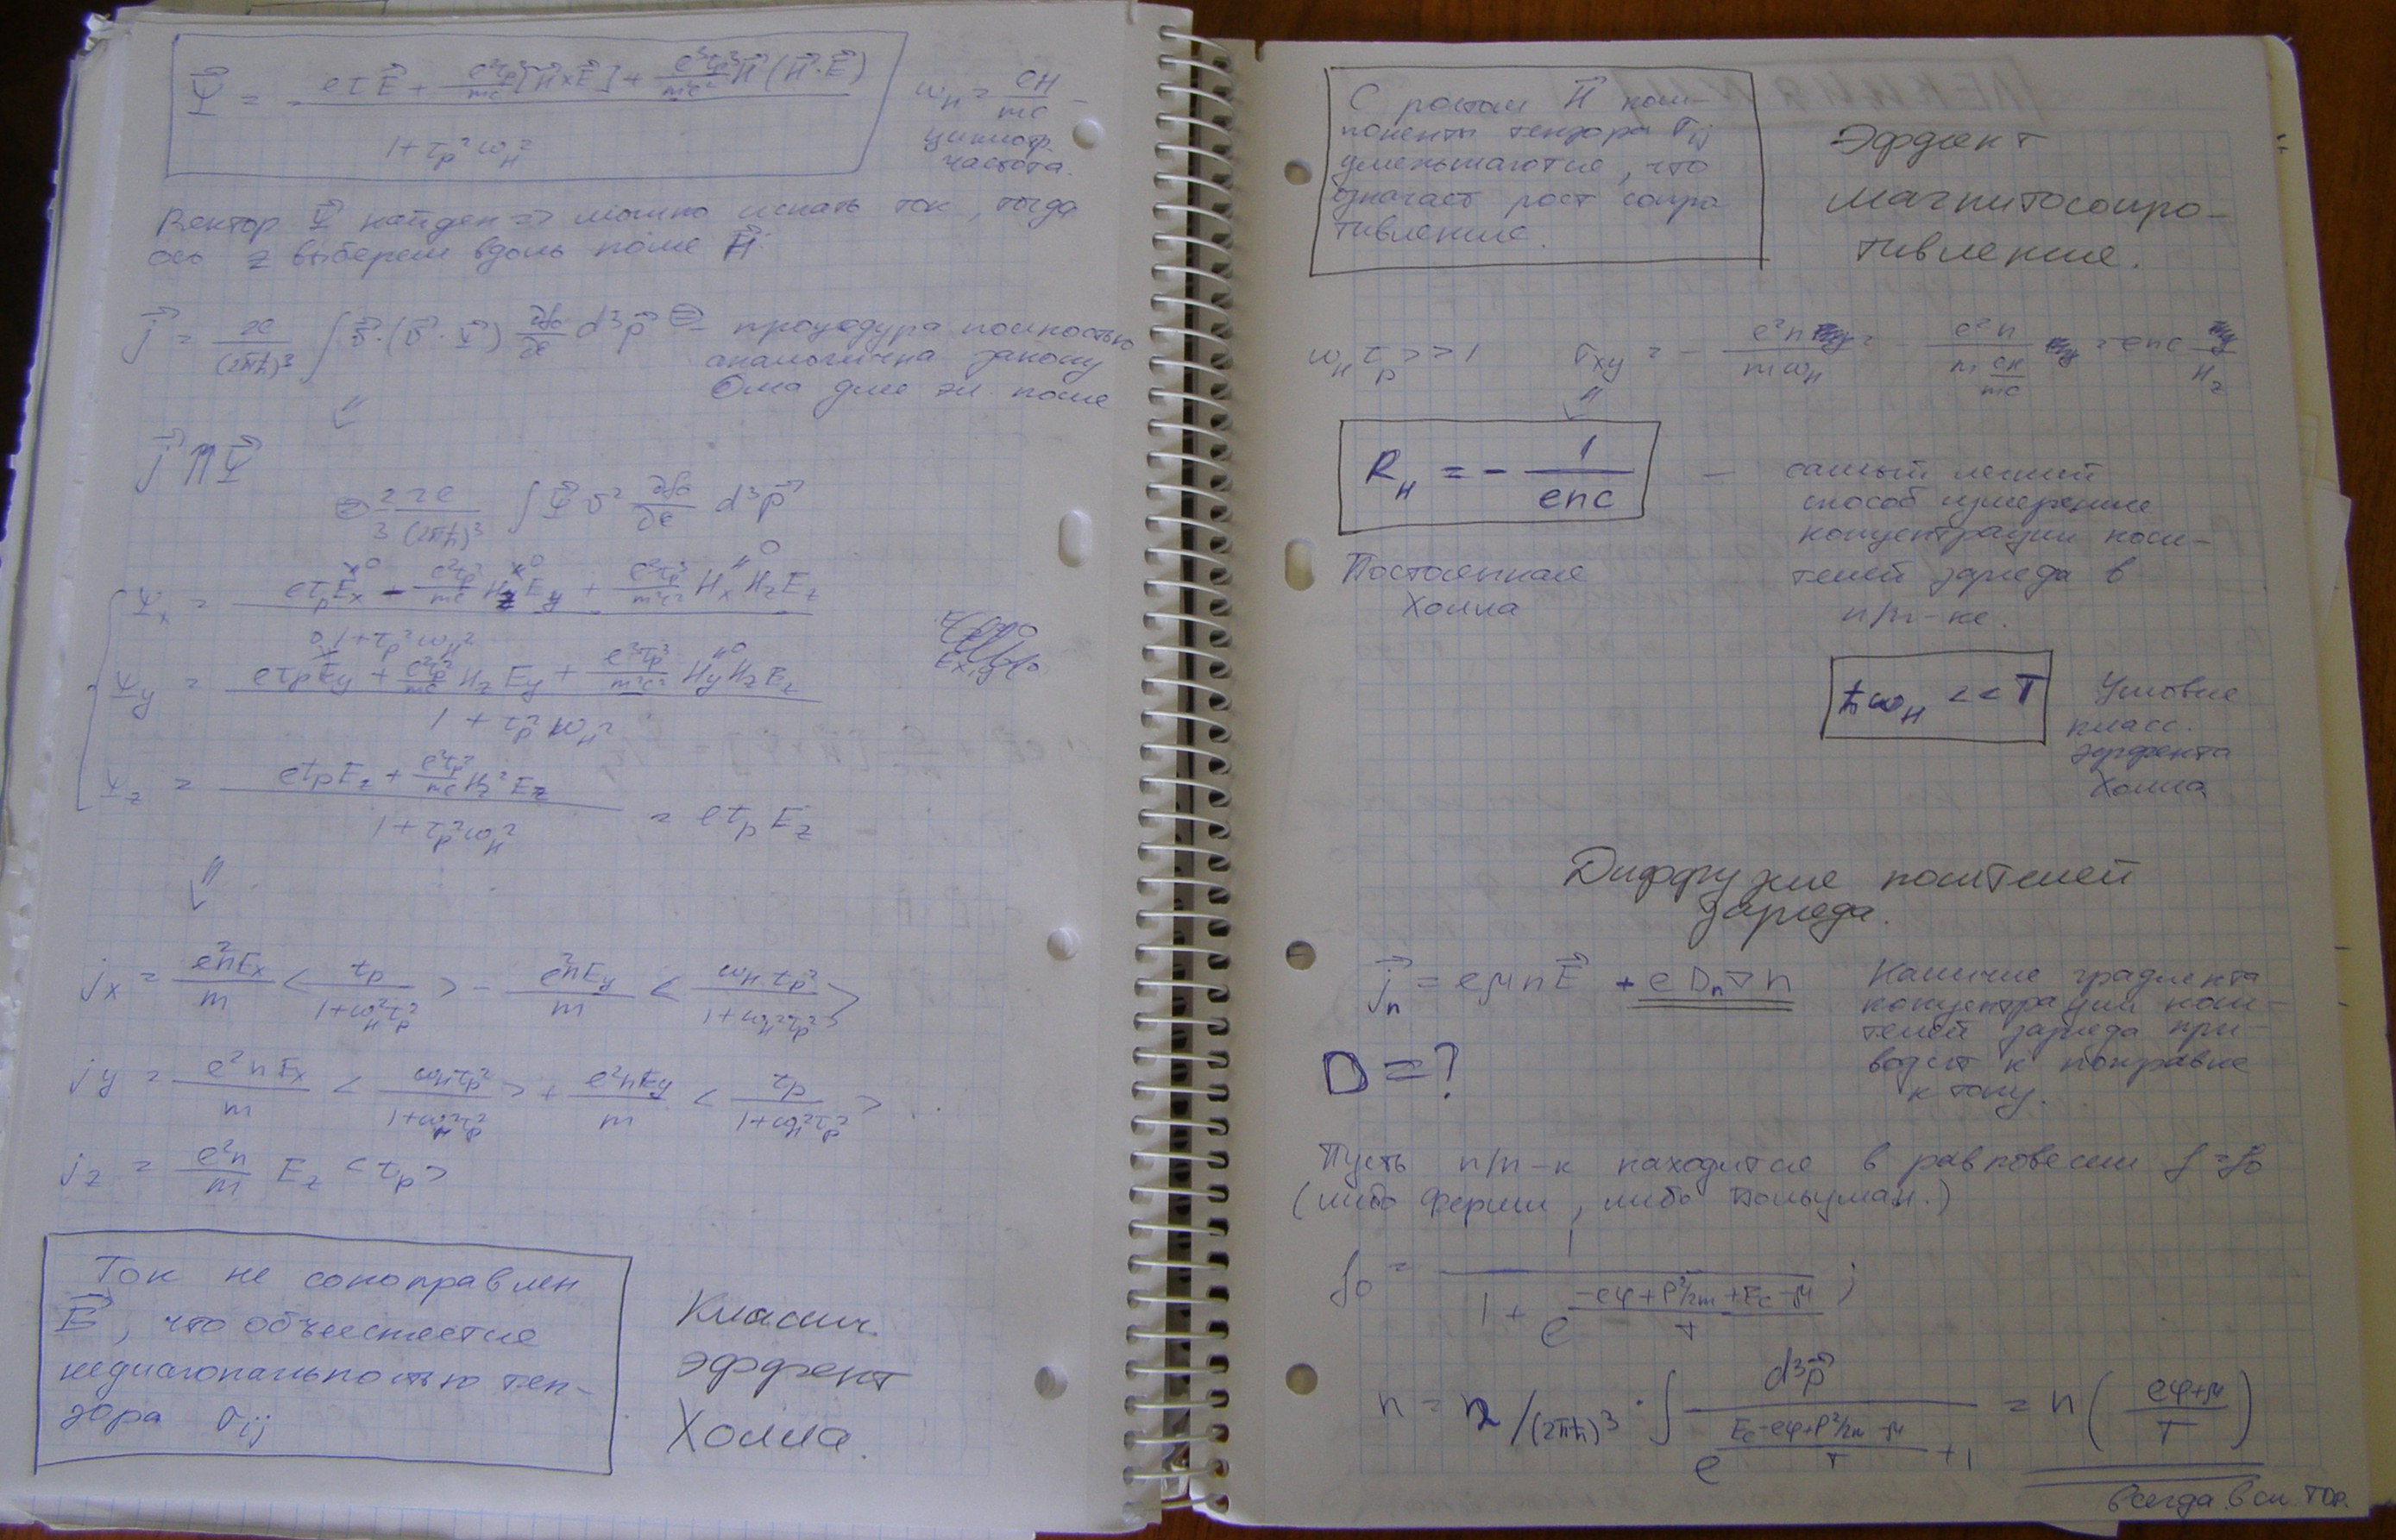 Ψ⃗ = (eτE⃗ + e²τp²/mc [H⃗×E⃗] + e³τp³/m²c² H⃗(H⃗·E⃗)) / (1+τp²ωH²)
ωH = eH/mc –
циклотр.
частота.
Вектор Ψ⃗ найден => можно искать ток, тогда
ось z выберем вдоль поля H⃗:
j⃗ = 2e/(2πħ)³ ∫ v⃗·(v⃗·Ψ⃗) ∂f₀/∂ε d³p⃗ ⊜ – процедура полностью
аналогична закону
Ома для эл. поля
⇓
j⃗ ⇈ Ψ⃗
⊜ 2/3 2e/(2πħ)³ ∫ Ψ⃗ v² ∂f₀/∂ε d³p⃗
Ψx = (eτpEx – e²τp²/mc HzEy + e³τp³/m²c² HxHzEz) / (1+τp²ωH²)
Ψy = (eτpEy + e²τp²/mc HzEy + e³τp³/m²c² HyHzEz) / (1+τp²ωH²)
Ψz = (eτpEz + e²τp²/mc Hz²Ez) / (1+τp²ωH²) = eτpEz
⇓
jx = e²nEx/m <τp/(1+ωH²τp²)> – e²nEy/m <ωHτp²/(1+ωH²τp²)>
jy = e²nEx/m <ωHτp²/(1+ωH²τp²)> + e²nEy/m <τp/(1+ωH²τp²)>
jz = e²n/m Ez <τp>
Ток не сонаправлен
E⃗, что объясняется
недиагональностью тен-
зора σij
Классич.
эффект
Холла.
С ростом H⃗ ком-
поненты тензора σij
уменьшаются, что
означает рост сопро
тивления.
Эффект
магнитосопро-
тивления.
ωHτp >> 1 σxy = – e²n/mωH = – e²n/(m eH/mc) = enc/Hz
⇓
RH = – 1/enc – самый легкий
способ измерения
концентрации носи-
телей заряда в
п/п-ке.
Постоянная
Холла
ħωH << T
Условие
класс.
эффекта
Холла
Диффузия носителей
заряда.
j⃗n = eμnE⃗ + eDn∇n
Наличие градиента
концентрации носи-
телей заряда при-
водит к поправке
к току.
D = ?
Пусть п/п-к находится в равновесии f = f₀
(либо Ферми, либо Больцман.)
f₀ = 1/(1 + e^((-eφ+P²/2m+Ec-μ)/T)) ;
n = 2/(2πħ)³ · ∫ d³p⃗/(e^((Ec-eφ+P²/2m-μ)/T) + 1) = n((eφ+μ)/T)